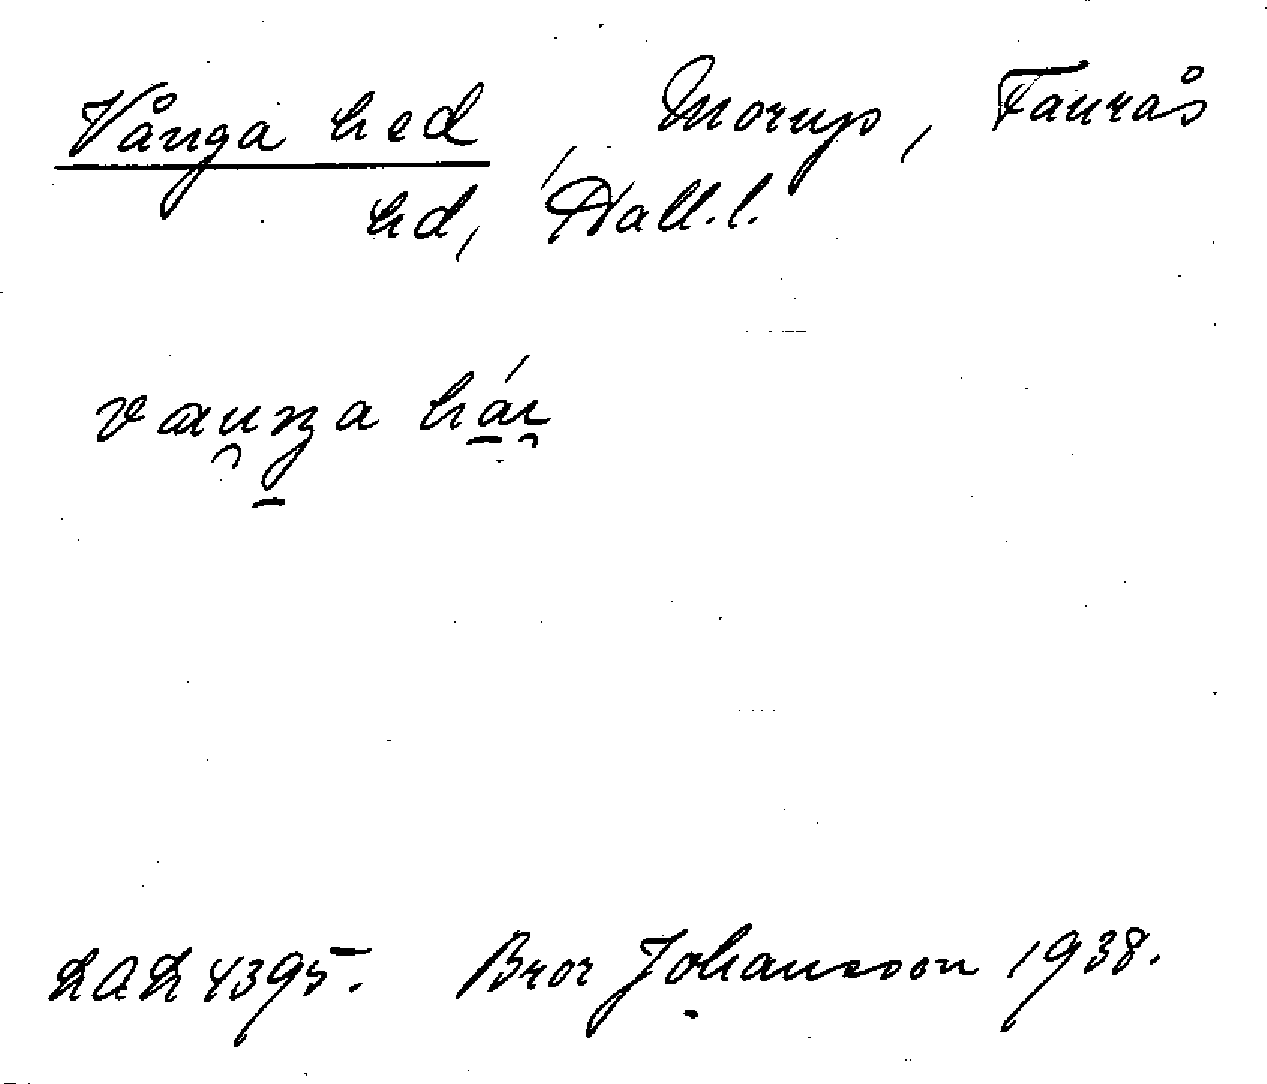 Vånga hed, Morup, Faurås
hd, Hall.l.
DAL 4395. Bror Johansson 1938.